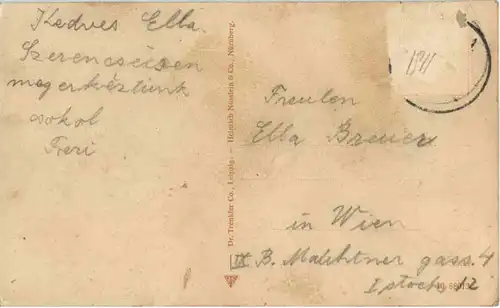 Kedves Ella.
Szerencsésen
megerkeztunk
csokol
Feri
Dr. Trenkler Co., Leipzig. — Heinrich Nüsslein & Co., Nürnberg.
Freulen
Ella Breuer
in Wien
IX B. gass. 4
I stock 12